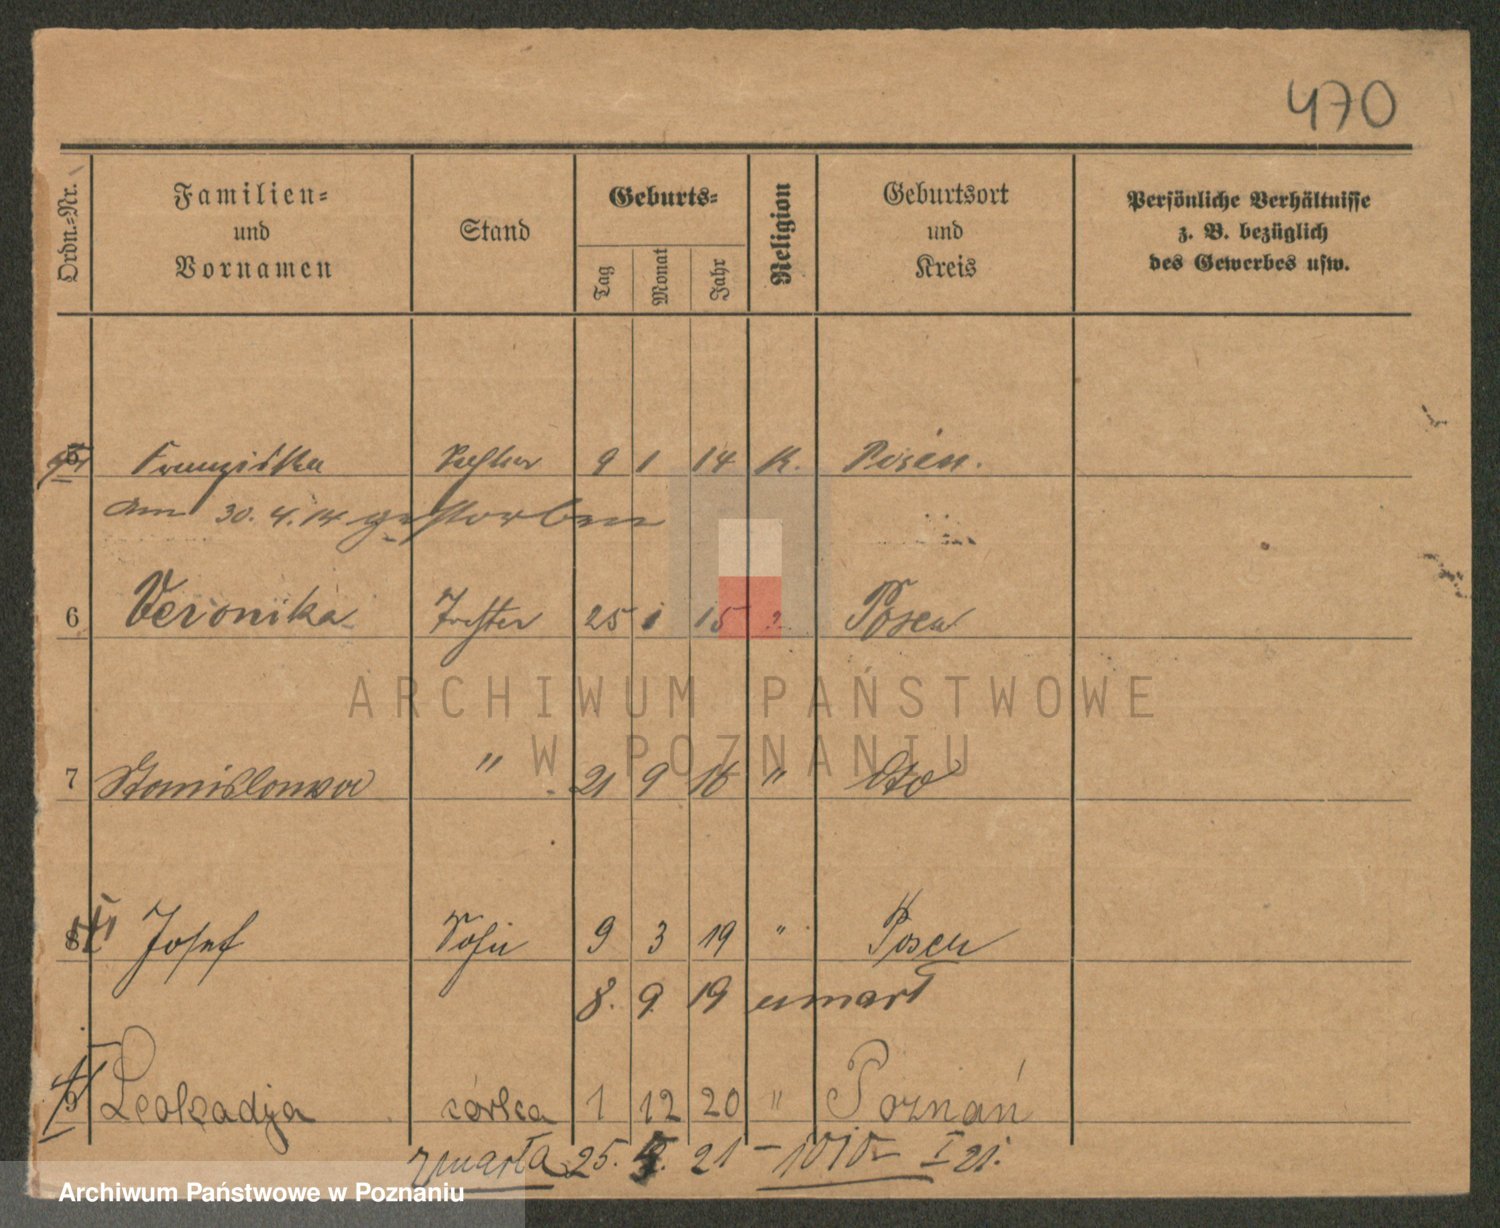 470
Ordn.=Nr. Familien= und Vornamen Stand Geburts= Tag Monat Jahr Religion Geburtsort und Kreis Persönliche Verhältnisse z. B. bezüglich des Gewerbes usw.
5 Franziska Tochter 9 1 14 K. Posen.
am 30. 4. 14 gestorben
6 Veronika Tochter 25 1 15 Posen
ARCHIWUM PAŃSTWOWE
W POZNANIU
7 Stanislawa " 21 9 16 " dto
8 Josef Sohn 9 3 19 " Posen
8. 9. 19 umarł
9 Leokadja córka 1 12 20 " Poznań
zmarła 25. 21 – I 21.
Archiwum Państwowe w Poznaniu